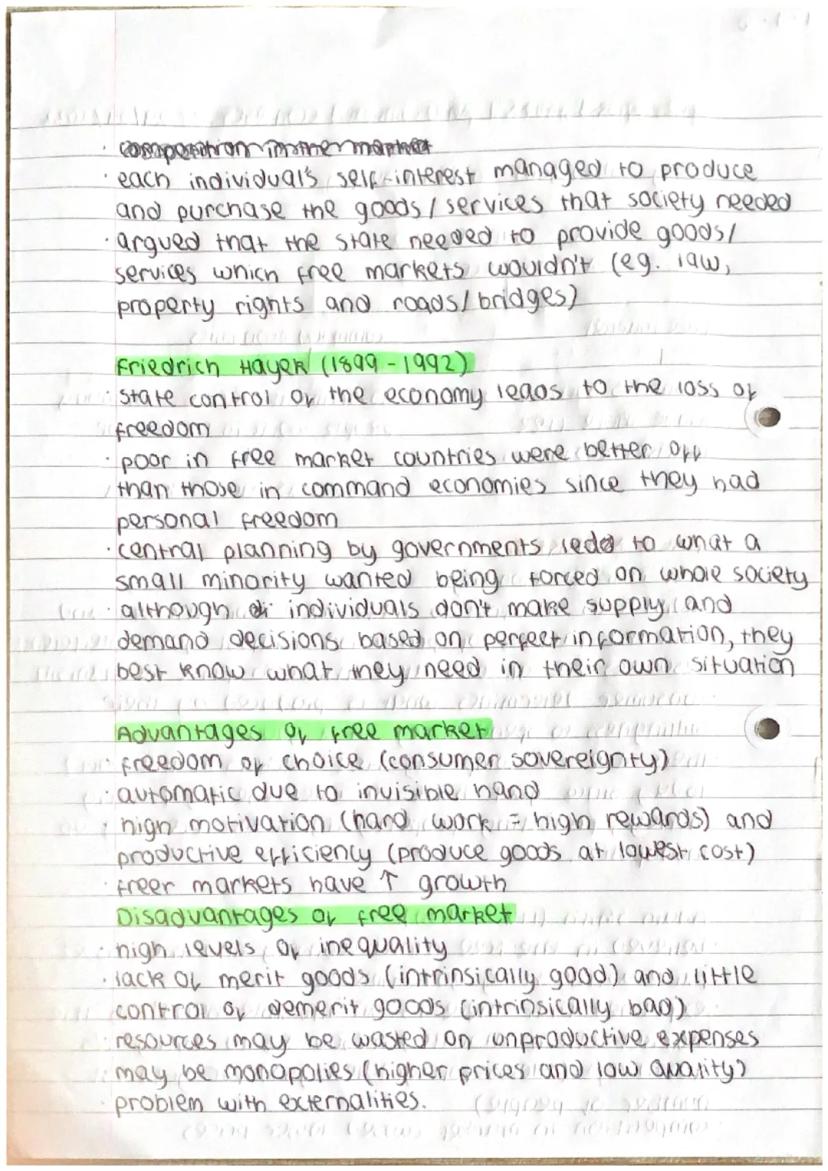 · competition in the market
· each individual's self-interest managed to produce
and purchase the goods/services that society needed
· argued that the state needed to provide goods/
services which free markets wouldn't (eg. law,
property rights and roads/bridges)
Friedrich Hayek (1899-1992)
· state control of the economy leads to the loss of
freedom
· poor in free market countries were better off
than those in command economies since they had
personal freedom
· central planning by governments led to what a
small minority wanted being forced on whole society
· although individuals don't make supply and
demand decisions based on perfect information, they
best know what they need in their own situation
Advantages of free market
· freedom of choice (consumer sovereignty)
· automatic due to invisible hand
· high motivation (hard work = high rewards) and
productive efficiency (produce goods at lowest cost)
· freer markets have ↑ growth
Disadvantages of free market
· high levels of inequality
· lack of merit goods (intrinsically good) and little
control of demerit goods (intrinsically bad)
· resources may be wasted on unproductive expenses
· may be monopolies (higher prices and low quality)
· problem with externalities.